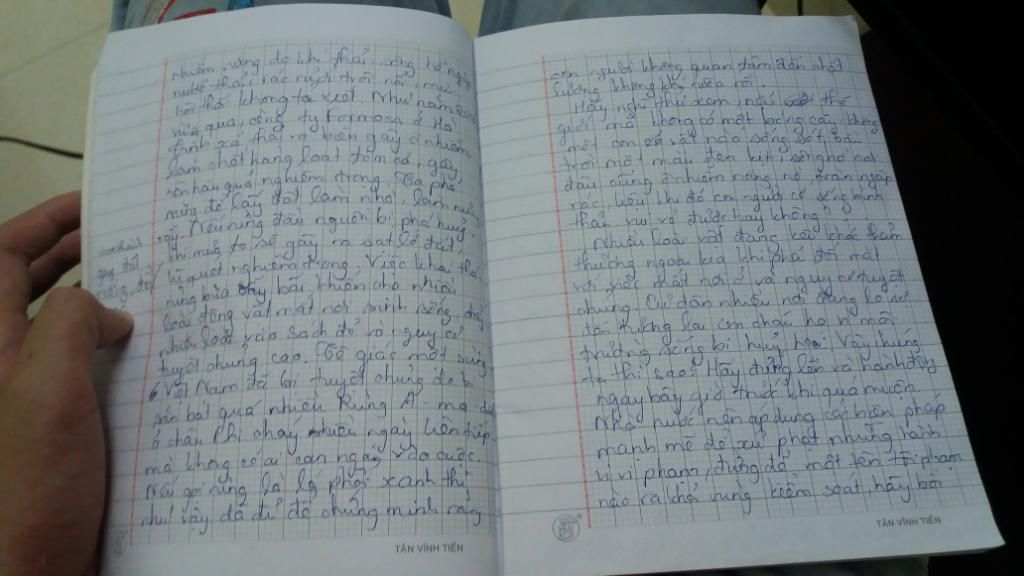 nhiễm nặng do khí thải, sông hồ ngập
nước thải, rác ngợi trôi nổi, mùi
hôi thối không tả xiết. Như năm 2016
vừa qua, công ty Formosa ở Hà
Tĩnh xả thải ra biển gây ô nhiễm
làm chết hàng loạt tôm cá, gây
nên hậu quả nghiêm trọng. Ta phá
rừng để lấy đất làm nhà, làm nương
rẫy. Nếu rừng đầu nguồn bị phá huỷ
khi mưa to sẽ gây ra sạt lở đất,
lũ quét nghiêm trọng. Việc khai thác
rừng bừa bãi khiến cho nhiều
loài động vật mất nơi sinh sống, đẩy
nhiều loài vào sách đỏ và nguy cơ
tuyệt chủng cao. Tê giác một sừng
Việt Nam đã bị tuyệt chủng do bị
săn bắt quá nhiều. Rừng A-ma-dôn
ở châu Phi cháy nhiều ngày liên tiếp
mà không có ai can ngăn vào cuộc.
Nói gọi rừng là lá phổi xanh thì
như vậy đã đủ để chứng minh rằng
con người không quan tâm đến chất
lượng không khí nữa rồi.
Hãy nghĩ thử xem, nếu thế
giới mà không có một bóng cây, không
một con vật nào sống sót bầu
trời một màu đen kịt, sông hồ nơi
đâu cũng ô nhiễm nặng nề, tràn ngập
rác liệu khi đó con người có sống mình
thản vui vẻ được hay không?
Nhiều loài vật đang kêu khóc thảm
thương ngoài kia khi phải đối mặt
với việc mất nơi ở và nguy cơ tuyệt
chủng. Cư dân nhiều nơi đang lo sợ
tới tương lai con cháu họ vì môi
trường sống bị huỷ hoại. Vậy chúng
ta thì sao? Hãy đứng lên và hành động
ngay bây giờ trước khi quá muộn.
Nhà nước nên áp dụng các biện pháp
mạnh mẽ để xử phạt những hành
vi vi phạm, đừng để một tên tội phạm
nào ra khỏi vùng kiểm soát, hãy bởi
TÂN VĨNH TIẾN
TÂN VĨNH TIẾN